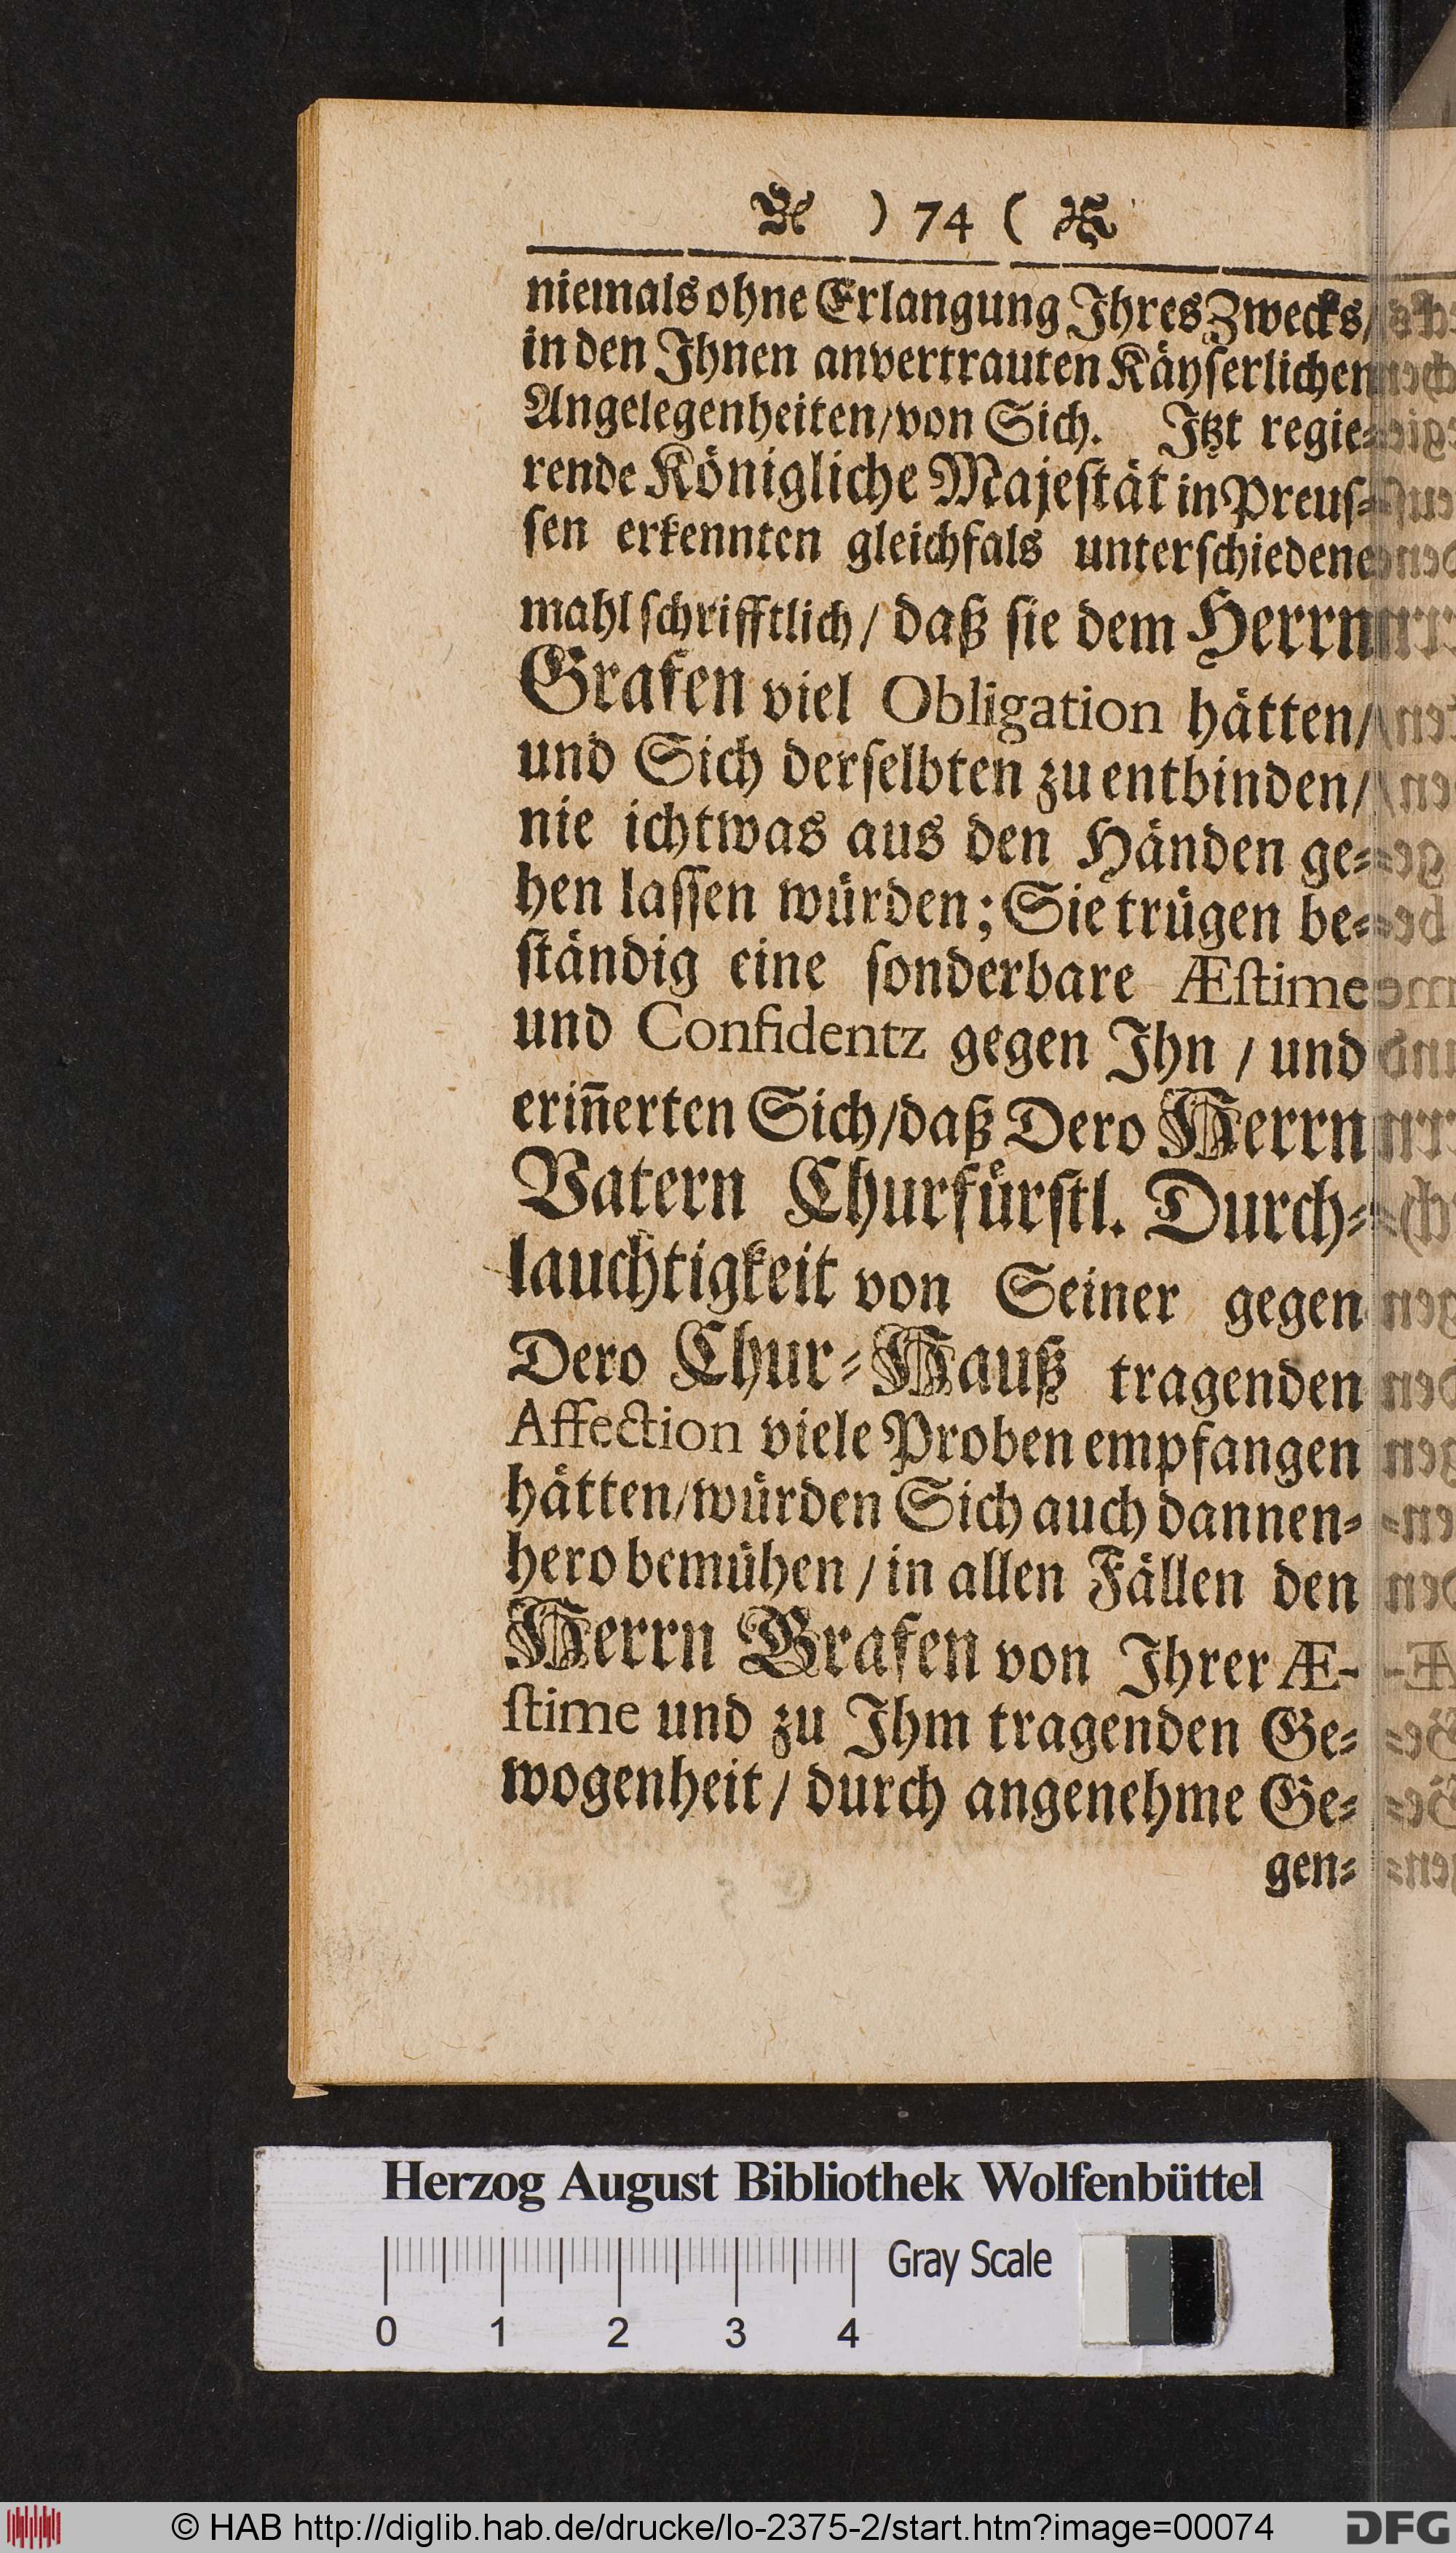 ) 74 (
niemals ohne Erlangung Ihres Zwecks/
in den Ihnen anvertrauten Käyserlichen
Angelegenheiten/von Sich. Itzt regie⸗
rende Königliche Majestät in Preus⸗
sen erkennten gleichfals unterschiedene
mahl schrifftlich/ daß sie dem Herrn
Grafen viel Obligation hätten/
und Sich derselbten zu entbinden/
nie ichtwas aus den Händen ge⸗
hen lassen würden; Sie trügen be⸗
ständig eine sonderbare Æstime
und Confidentz gegen Ihn / und
eriñerten Sich/daß Dero Herrn
Vatern Churfürstl. Durch⸗
lauchtigkeit von Seiner gegen
Dero Chur⸗Hauß tragenden
Affection viele Proben empfangen
hätten/würden Sich auch dannen⸗
hero bemühen / in allen Fällen den
Herrn Grafen von Ihrer Æ-
stime und zu Ihm tragenden Ge⸗
wogenheit / durch angenehme Ge⸗
gen⸗
Herzog August Bibliothek Wolfenbüttel
Gray Scale
0 1 2 3 4
© HAB http://diglib.hab.de/drucke/lo-2375-2/start.htm?image=00074
DFG